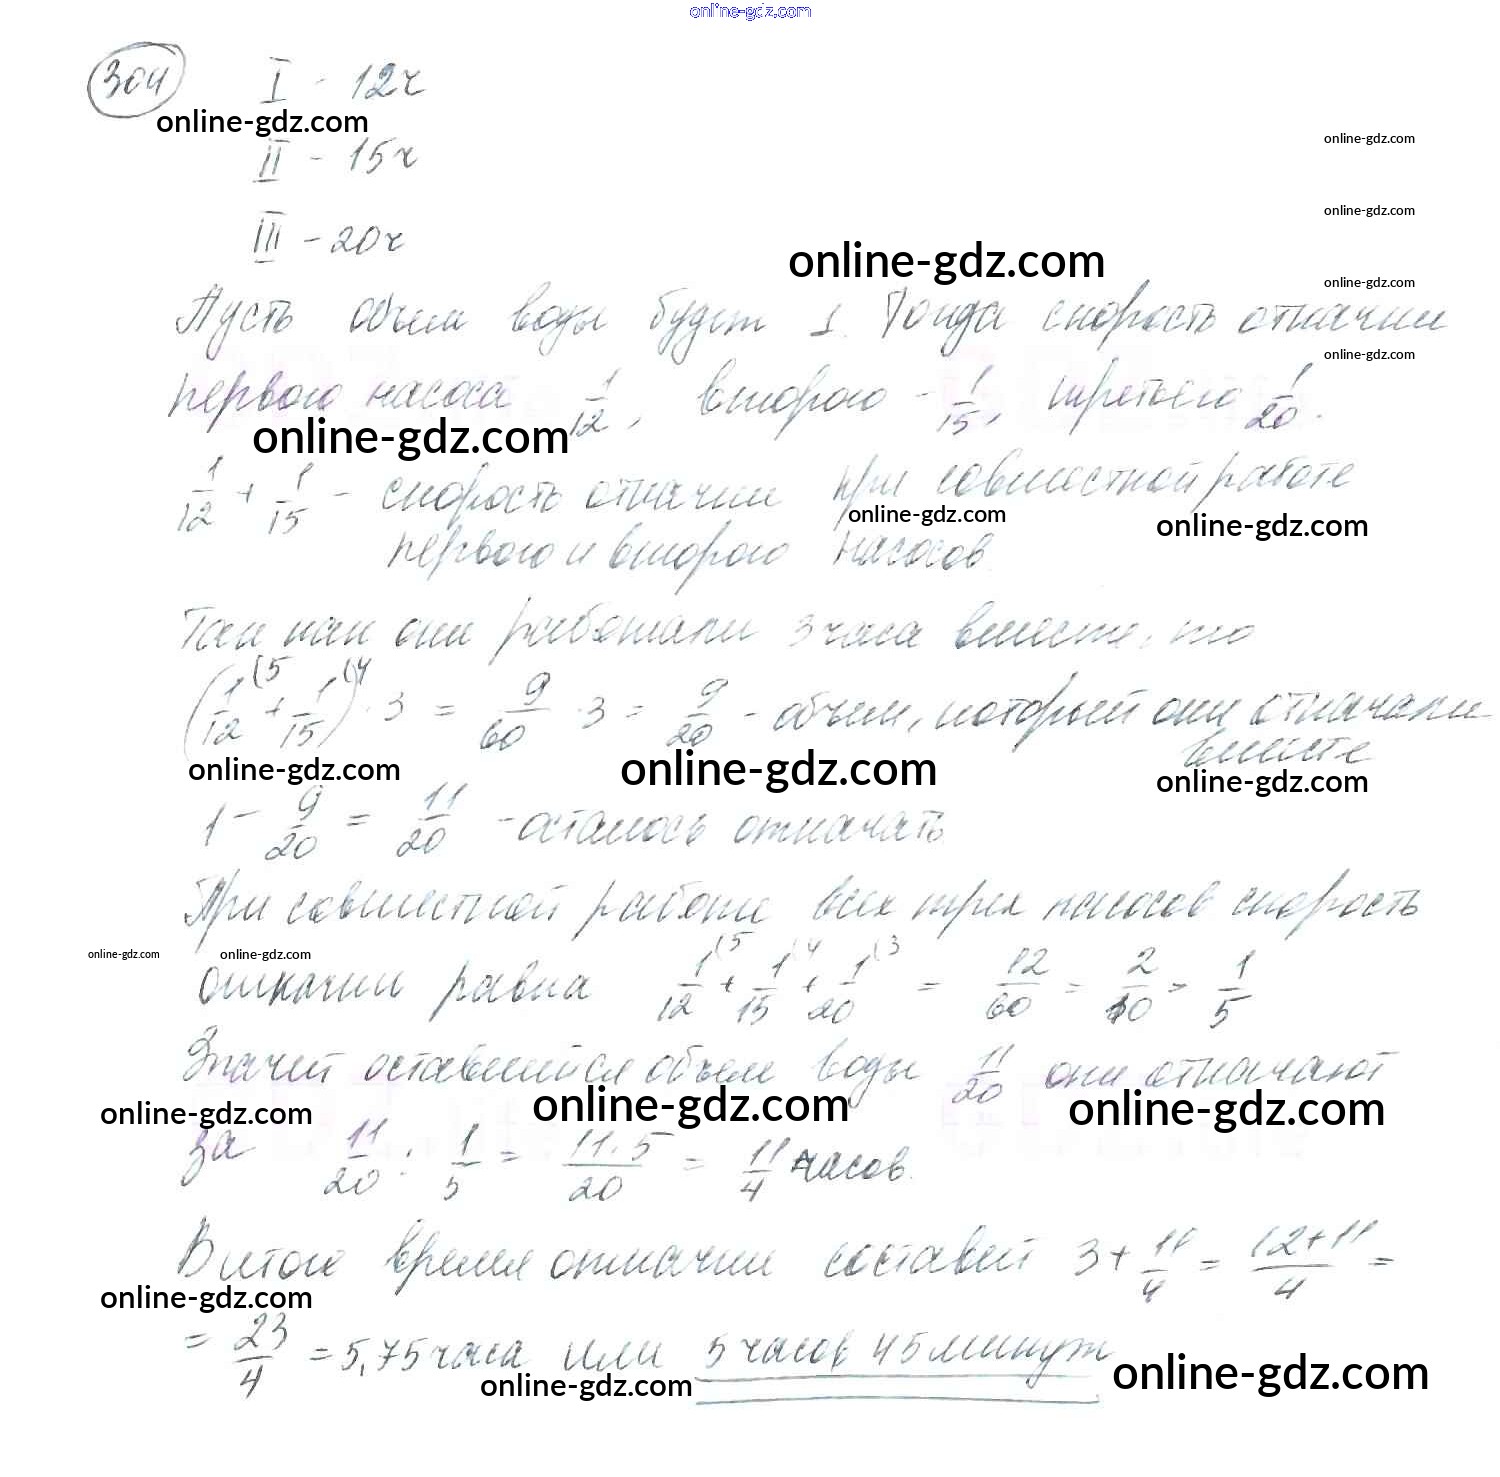 online-gdz.com
304 I - 12ч
online-gdz.com
II - 15ч
online-gdz.com
online-gdz.com
III - 20ч
online-gdz.com
online-gdz.com
Пусть объем воды будет 1. Тогда скорость откачки
online-gdz.com
первого насоса 1/12, второго - 1/15, третьего 1/20.
online-gdz.com
1/12 + 1/15 - скорость откачки при совместной работе
online-gdz.com online-gdz.com
первого и второго насосов.
Так как они работали 3 часа вместе, то
(1/12 (5 + 1/15 (4) · 3 = 9/60 · 3 = 9/20 - объем, который они откачали
вместе
online-gdz.com online-gdz.com online-gdz.com
1 - 9/20 = 11/20 - осталось откачать.
При совместной работе всех трех насосов скорость
online-gdz.com online-gdz.com
откачки равна 1/12 (5 + 1/15 (4 + 1/20 (3 = 12/60 = 2/10 = 1/5
Значит оставшийся объем воды 11/20 они откачают
online-gdz.com online-gdz.com online-gdz.com
за 11/20 : 1/5 = 11·5/20 = 11/4 часов.
В итоге время откачки составит 3 + 11/4 = 12+11/4 =
online-gdz.com
= 23/4 = 5,75 часа или 5 часов 45 минут
online-gdz.com online-gdz.com